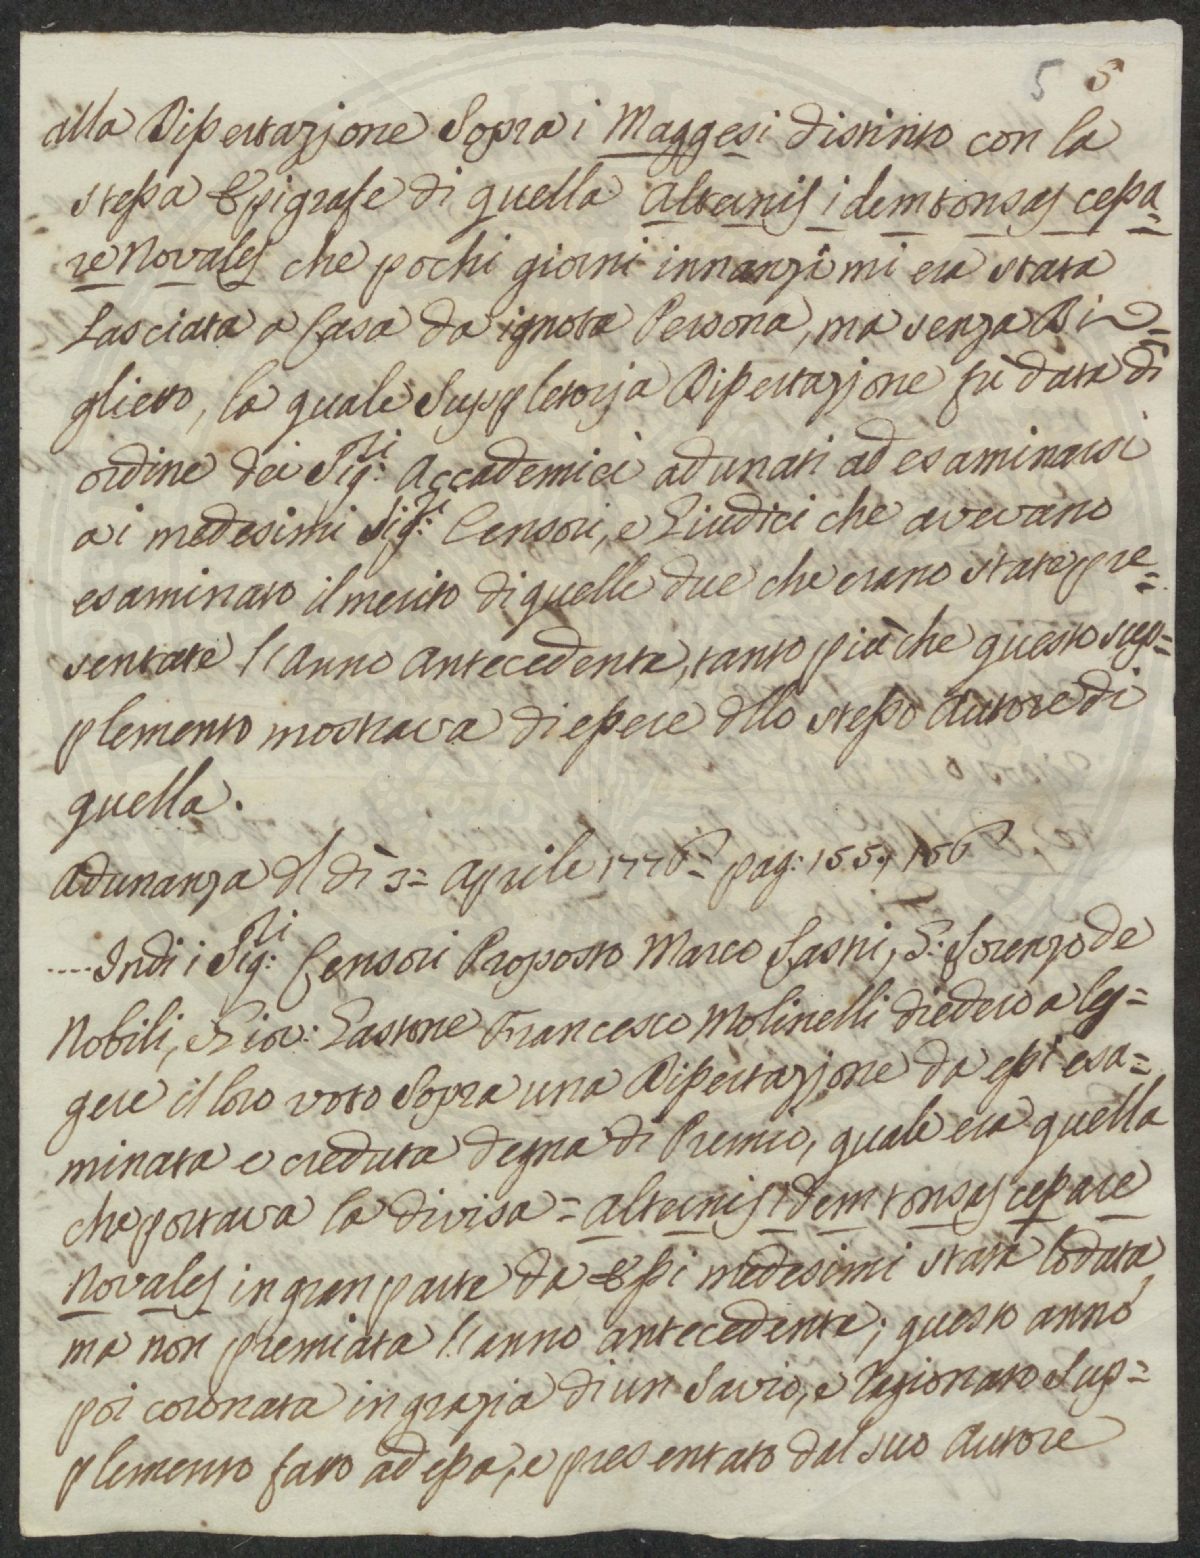 5 5
alla Dissertazione Sopra i Maggesi distinto con la
stessa Epigrafe di quella Alternis idem tonsas cessa=
re Novales che pochi giorni innanzi mi era stata
Lasciata a Casa da ignota Persona, ma senza Bi=
glietto, la quale Suppletoria Dissertazione fù data di
ordine dei Sig:ri Accademici adunati ad esaminarsi
ai medesimi Sig:ri Censori, e Giudici che avevano
esaminato il merito di quelle due che erano state pre=
sentate l'Anno Antecedente, tanto più che questo sup=
plemento mostrava di essere dllo stesso Autore di
quella.
Adunanza dl dì 3= Aprile 1776= pag: 155, 156
.... Indi i Sig:ri Censori Proposto Marco Lastri, S: Lorenzo de
Nobili, e Gio: Gastone Francesco Molinelli diedero a leg=
gere il loro voto Sopra una Dissertazione da essi esa=
minata e creduta degna di Premio, quale era quella
che portava la divisa = Alternis idem tonsas cessare
Novales in gran parte da Essi medesimi stata lodata,
ma non premiata l'anno antecedente; questo anno
poi coronata in grazia di un Savio, e Ragionato Sup=
plemento fatto ad essa, e presentato dal suo Autore